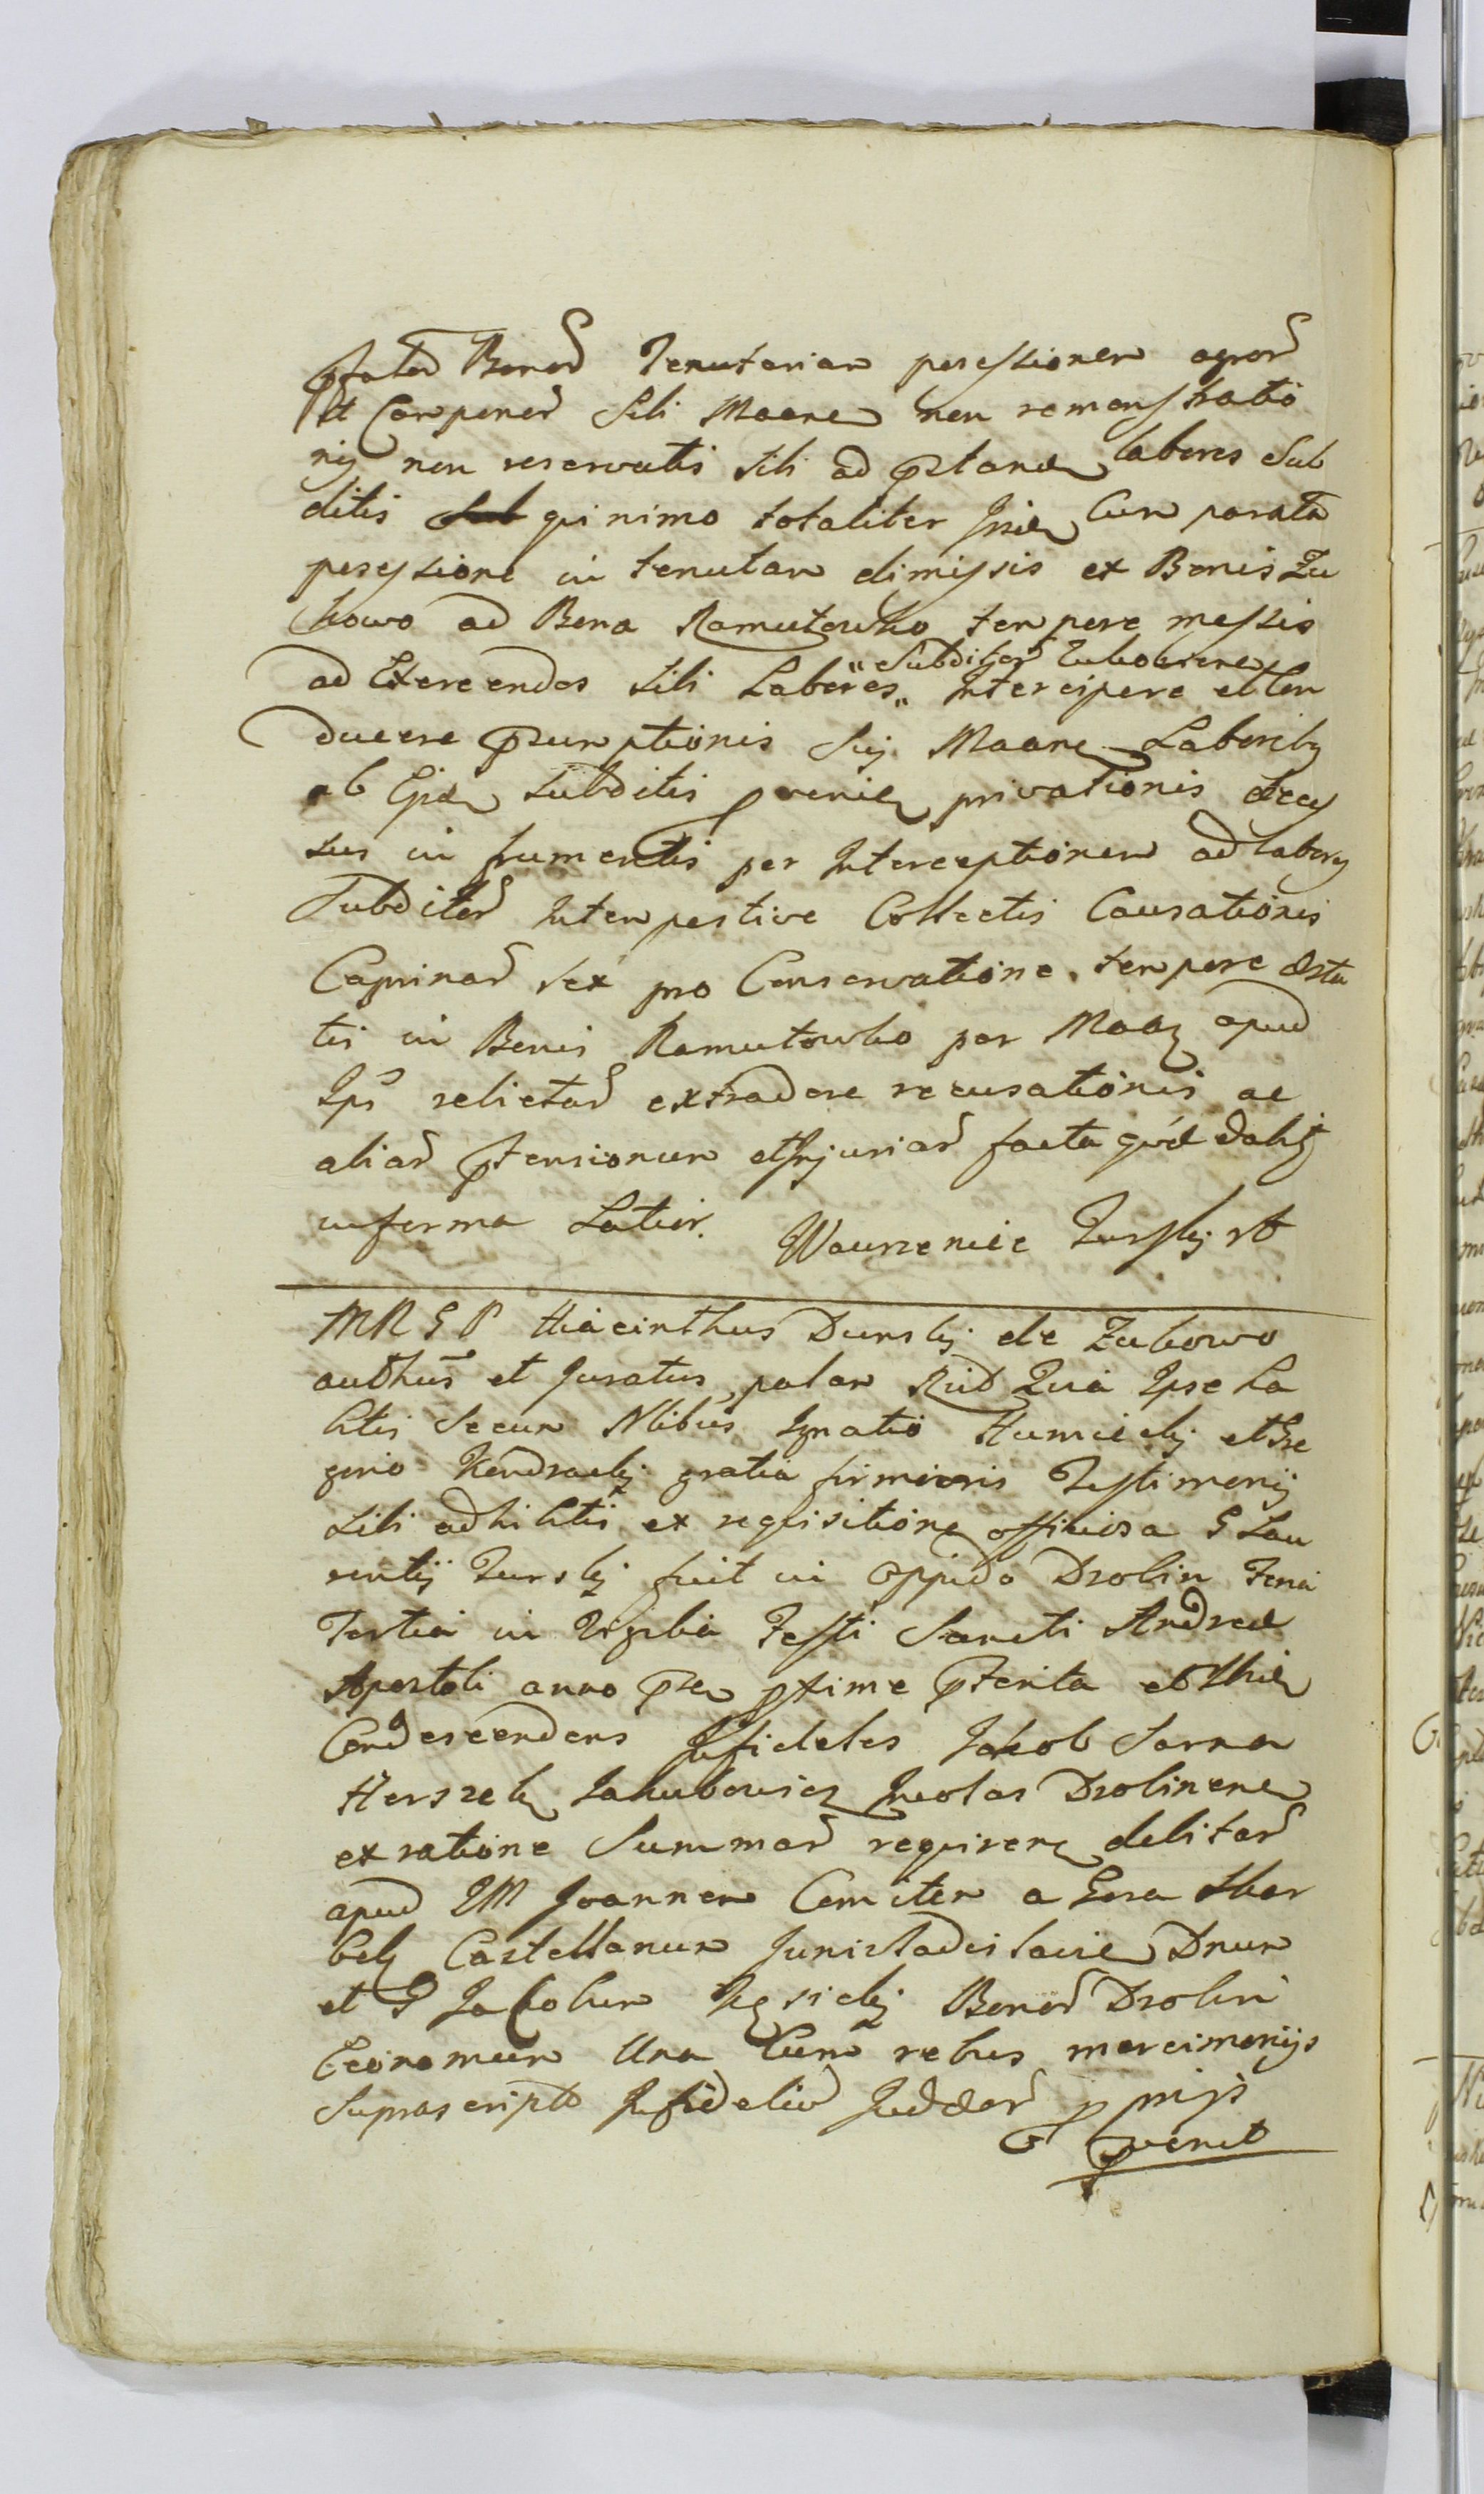 pfatod Bonod Tenutariam possessionem agrod
et Camponod Sibi Maane non remonstratio
nis non reservatis sibi ad pstand labores Sub
ditis quinimo totaliter Cum parata
possessione in tenutam dimissis ex Bonis Zu
kowo ad Bona Ramutowko tempore messis
ad Exercendos sibi Labores „Subditod Zukoviens„ Intercipere et Con
ducere psumptionis Sui Maane Laboribz
ab Ejsd subditis pvenien privationis deces
sus in frumentis per Interceptionem ad labores
Subditod Intempestive Collectis Causationis
Caprinad sex pro Conservatione tempore Esta
tis in Bonis Ramutowko per Maaz apud
Ips relictad extradere recusationis ac
aliad ptensionum et Injuriad facta
in forma Latior. Wawrzeniec Turski
MRGP Hiacinthus Dunski de Zukowo
authus et Juratus palam Quia Ipse ha
bitis Secum Nlibus Ignatio et Gre
gorio Kendracki gratia firmioris Testimonij
sibi adhibitis ex requisitione officiosa G Lau
rentij Turski fuit in Oppido Drobin Feria
Tertia in Vigilia Festi Sancti Andreae
Apostoli anno psen pxime pterita et Ibid
Condescendens Infideles Jakob Sarna
Herszek Jakubowicz Incolas Drobinen
ex ratione Summad requiren debitad
apud IM Joannem Comitem a Gora Skar
bek Castellanum Junivladislavien Dnum
et G Jacobum Bonod Drobin
Economum Una Cum rebus mercimonijs
Suprascripto Infidelid Judeod ppnijs
pvenit